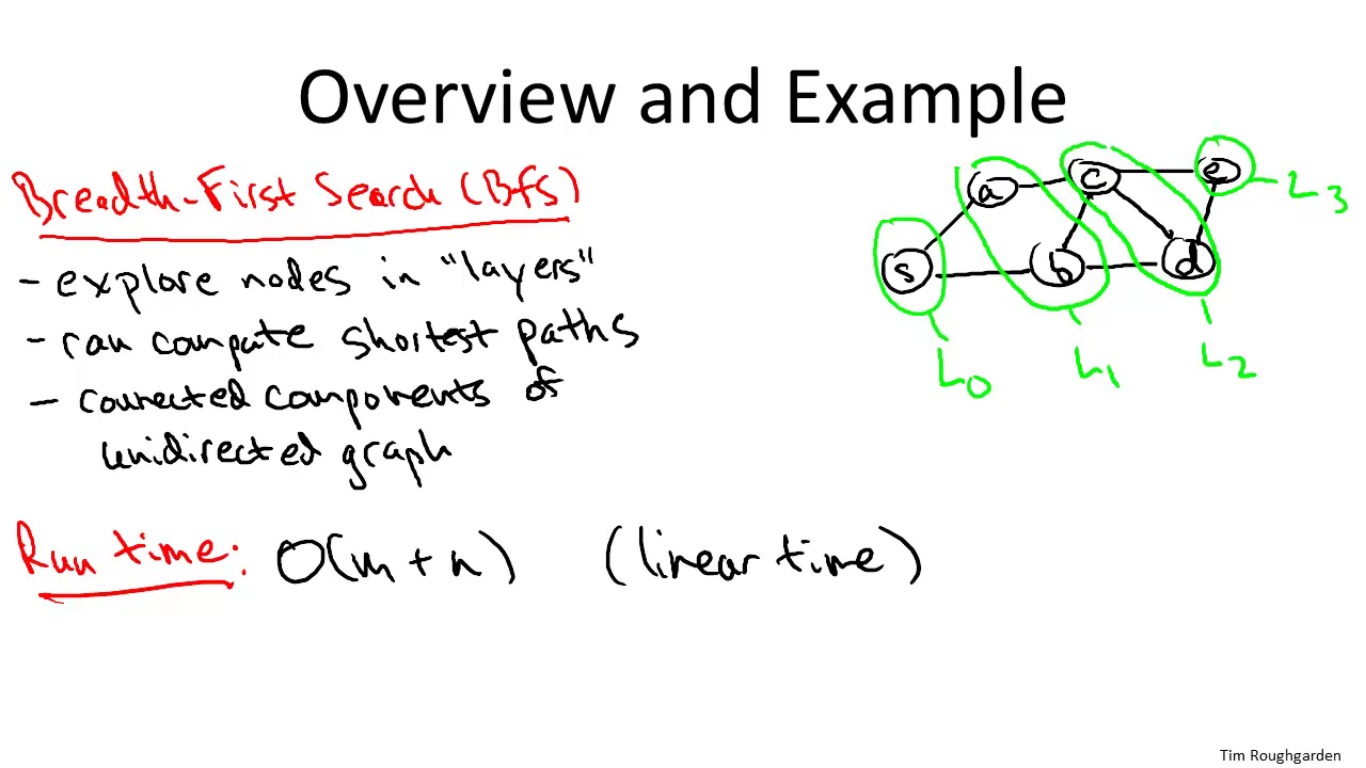 Overview and Example
Breadth-First Search (BFS)
- explore nodes in "layers"
- can compute shortest paths
- connected components of
unidirected graph
Run time: O(m+n) (linear time)
s
a
b
c
d
e
L0
L1
L2
L3
Tim Roughgarden